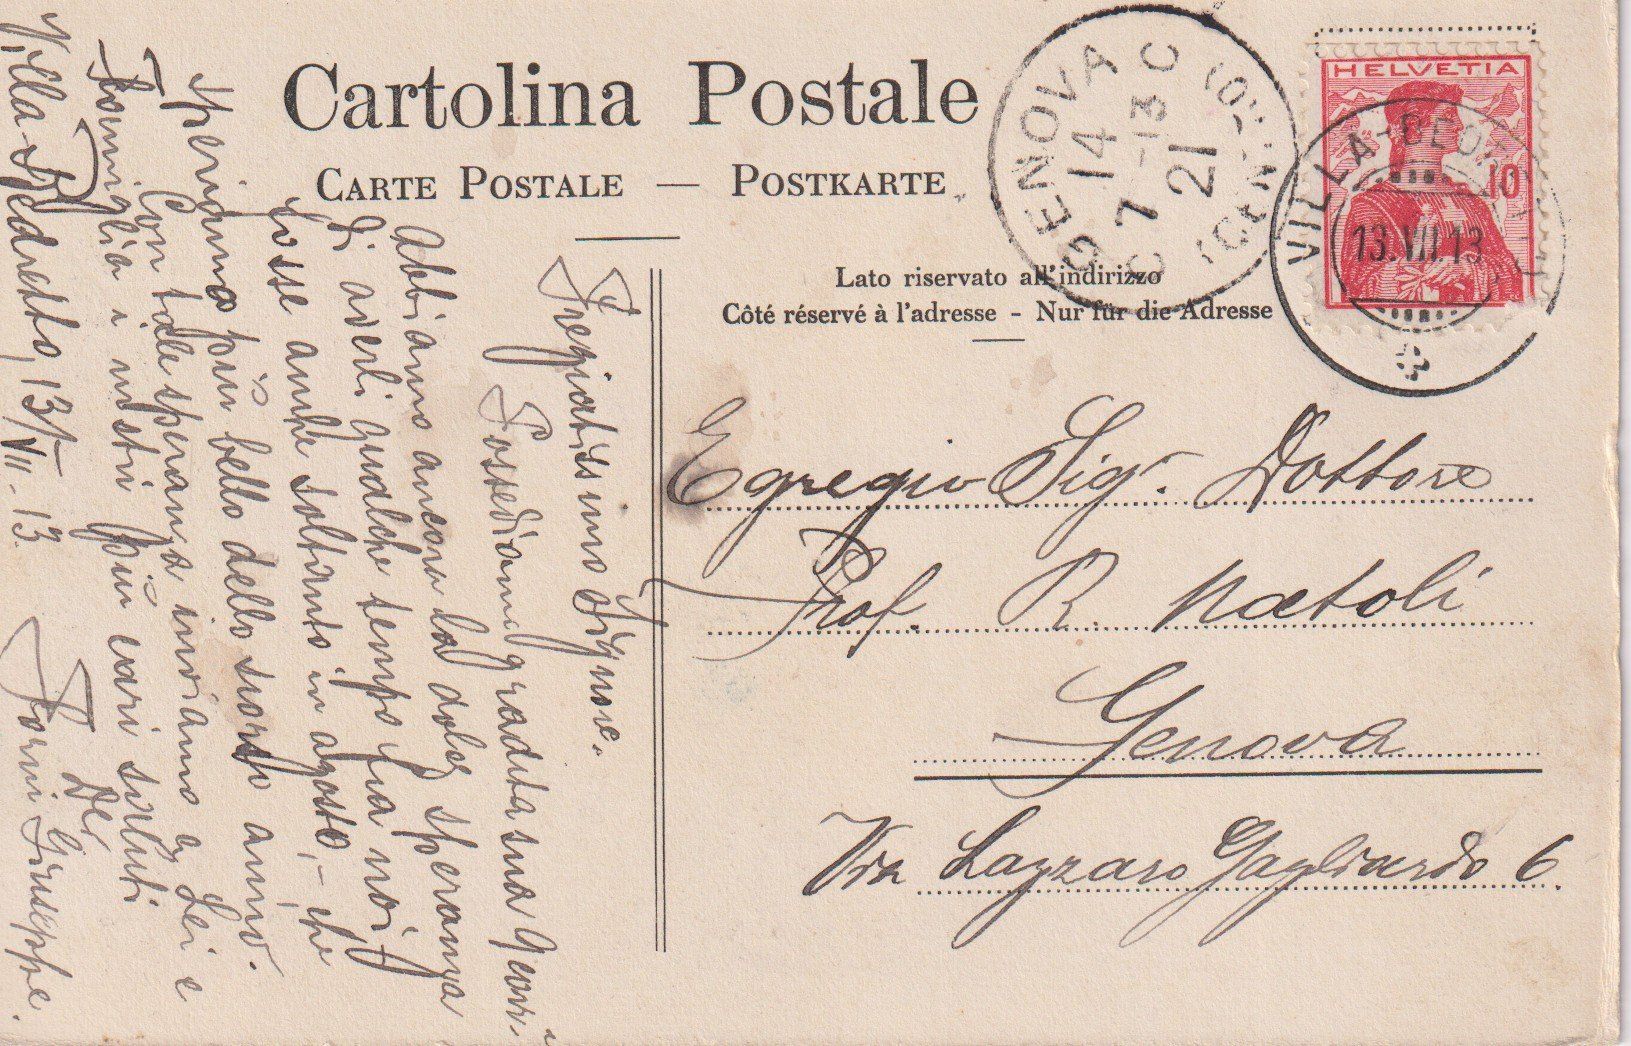 Cartolina Postale
CARTE POSTALE — POSTKARTE
Lato riservato all'indirizzo
Côté réservé à l'adresse - Nur für die Adresse
HELVETIA
10
VILLA-BEDRETTO
13.VII.13
GENOVA
14
7-13
21
Egregio Sigr. Dottore
Prof. R. Natoli
Genova
Via Lazzaro Gagliardo 6.
Pregiatissimo Signore.
Possediamo gradita sua
Abbiamo ancora la dolce speranza
di averli qualche tempo fra noi,
fosse anche soltanto in agosto, – che
speriamo più bello dello scorso anno.
Con tale speranza inviamo a Lei e
Famiglia i nostri più cari saluti
Forni Giuseppe.
Villa-Bedretto, 13/VII.13.